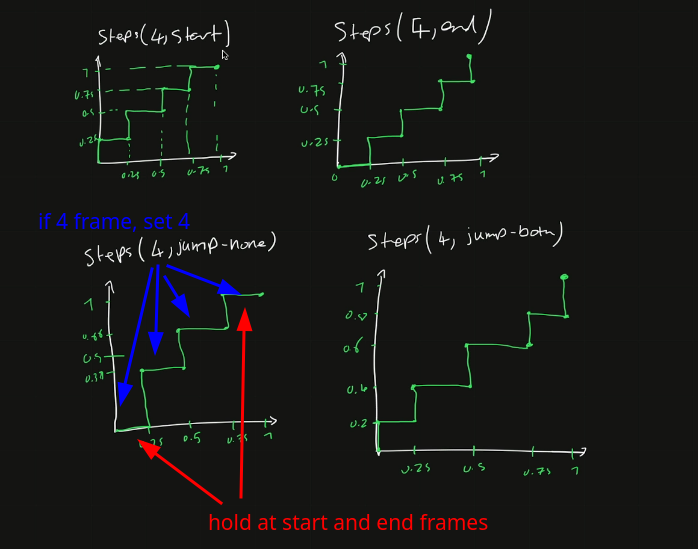 Steps(4,start)
1
0.75
0.5
0.25
0.25 0.5 0.75 1
Steps(4,end)
1
0.75
0.5
0.25
0 0.25 0.5 0.75 1
if 4 frame, set 4
Steps(4,jump-none)
1
0.66
0.5
0.33
0.25 0.5 0.75 1
Steps(4, jump-both)
1
0.8
0.6
0.4
0.2
0.25 0.5 0.75 1
hold at start and end frames